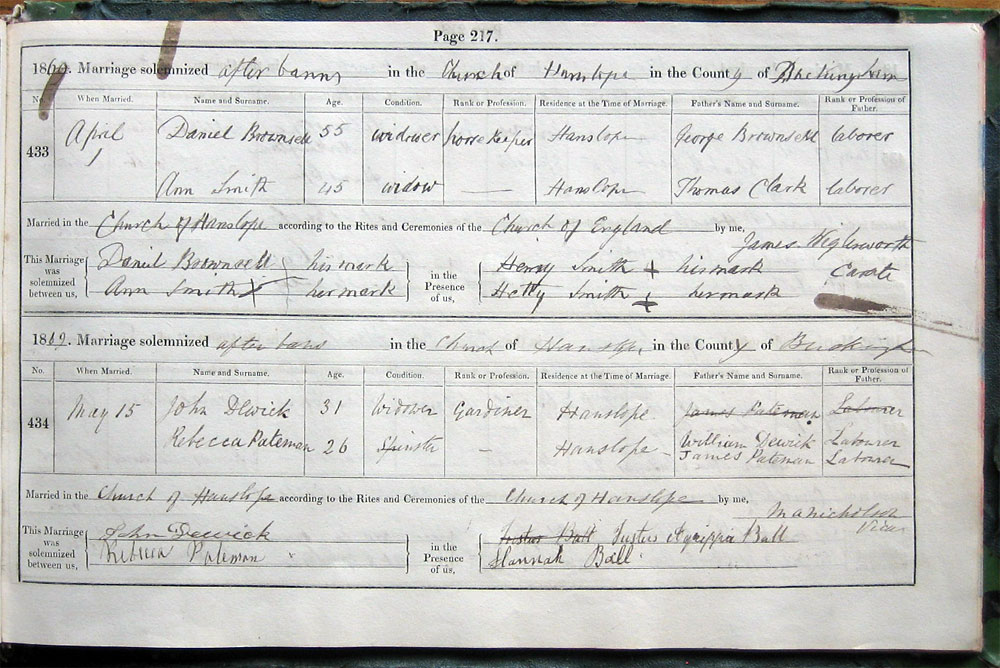 Page 217.
1860. Marriage solemnized after banns in the Church of Hanslope in the County of Buckingham
No. When Married. Name and Surname. Age. Condition. Rank or Profession. Residence at the Time of Marriage. Father's Name and Surname. Rank or Profession of Father.
433 April 1 Daniel Brownsell 55 widower horse keeper Hanslope George Brownsell laborer
Ann Smith 45 widow — Hanslope Thomas Clark laborer
Married in the Church of Hanslope according to the Rites and Ceremonies of the Church of England by me,
James Wiglesworth
Curate
This Marriage was solemnized between us, Daniel Brownsell + his mark in the Presence of us, Henry Smith + his mark
Ann Smith X her mark Hetty Smith + her mark
1862. Marriage solemnized after bans in the Church of Hanslope in the County of Buckingh
No. When Married. Name and Surname. Age. Condition. Rank or Profession. Residence at the Time of Marriage. Father's Name and Surname. Rank or Profession of Father.
434 May 15 John Dewick 31 Widower Gardiner Hanslope James Pateman Labourer
Rebecca Pateman 26 Spinster — Hanslope William Dewick Labourer
James Pateman Labourer
Married in the Church of Hanslope according to the Rites and Ceremonies of the Church of Hanslope by me,
M A Nicholson
Vicar
This Marriage was solemnized between us, John Dewick in the Presence of us, Justus Ball Justus Agrippa Ball
Rebecca Pateman Hannah Ball